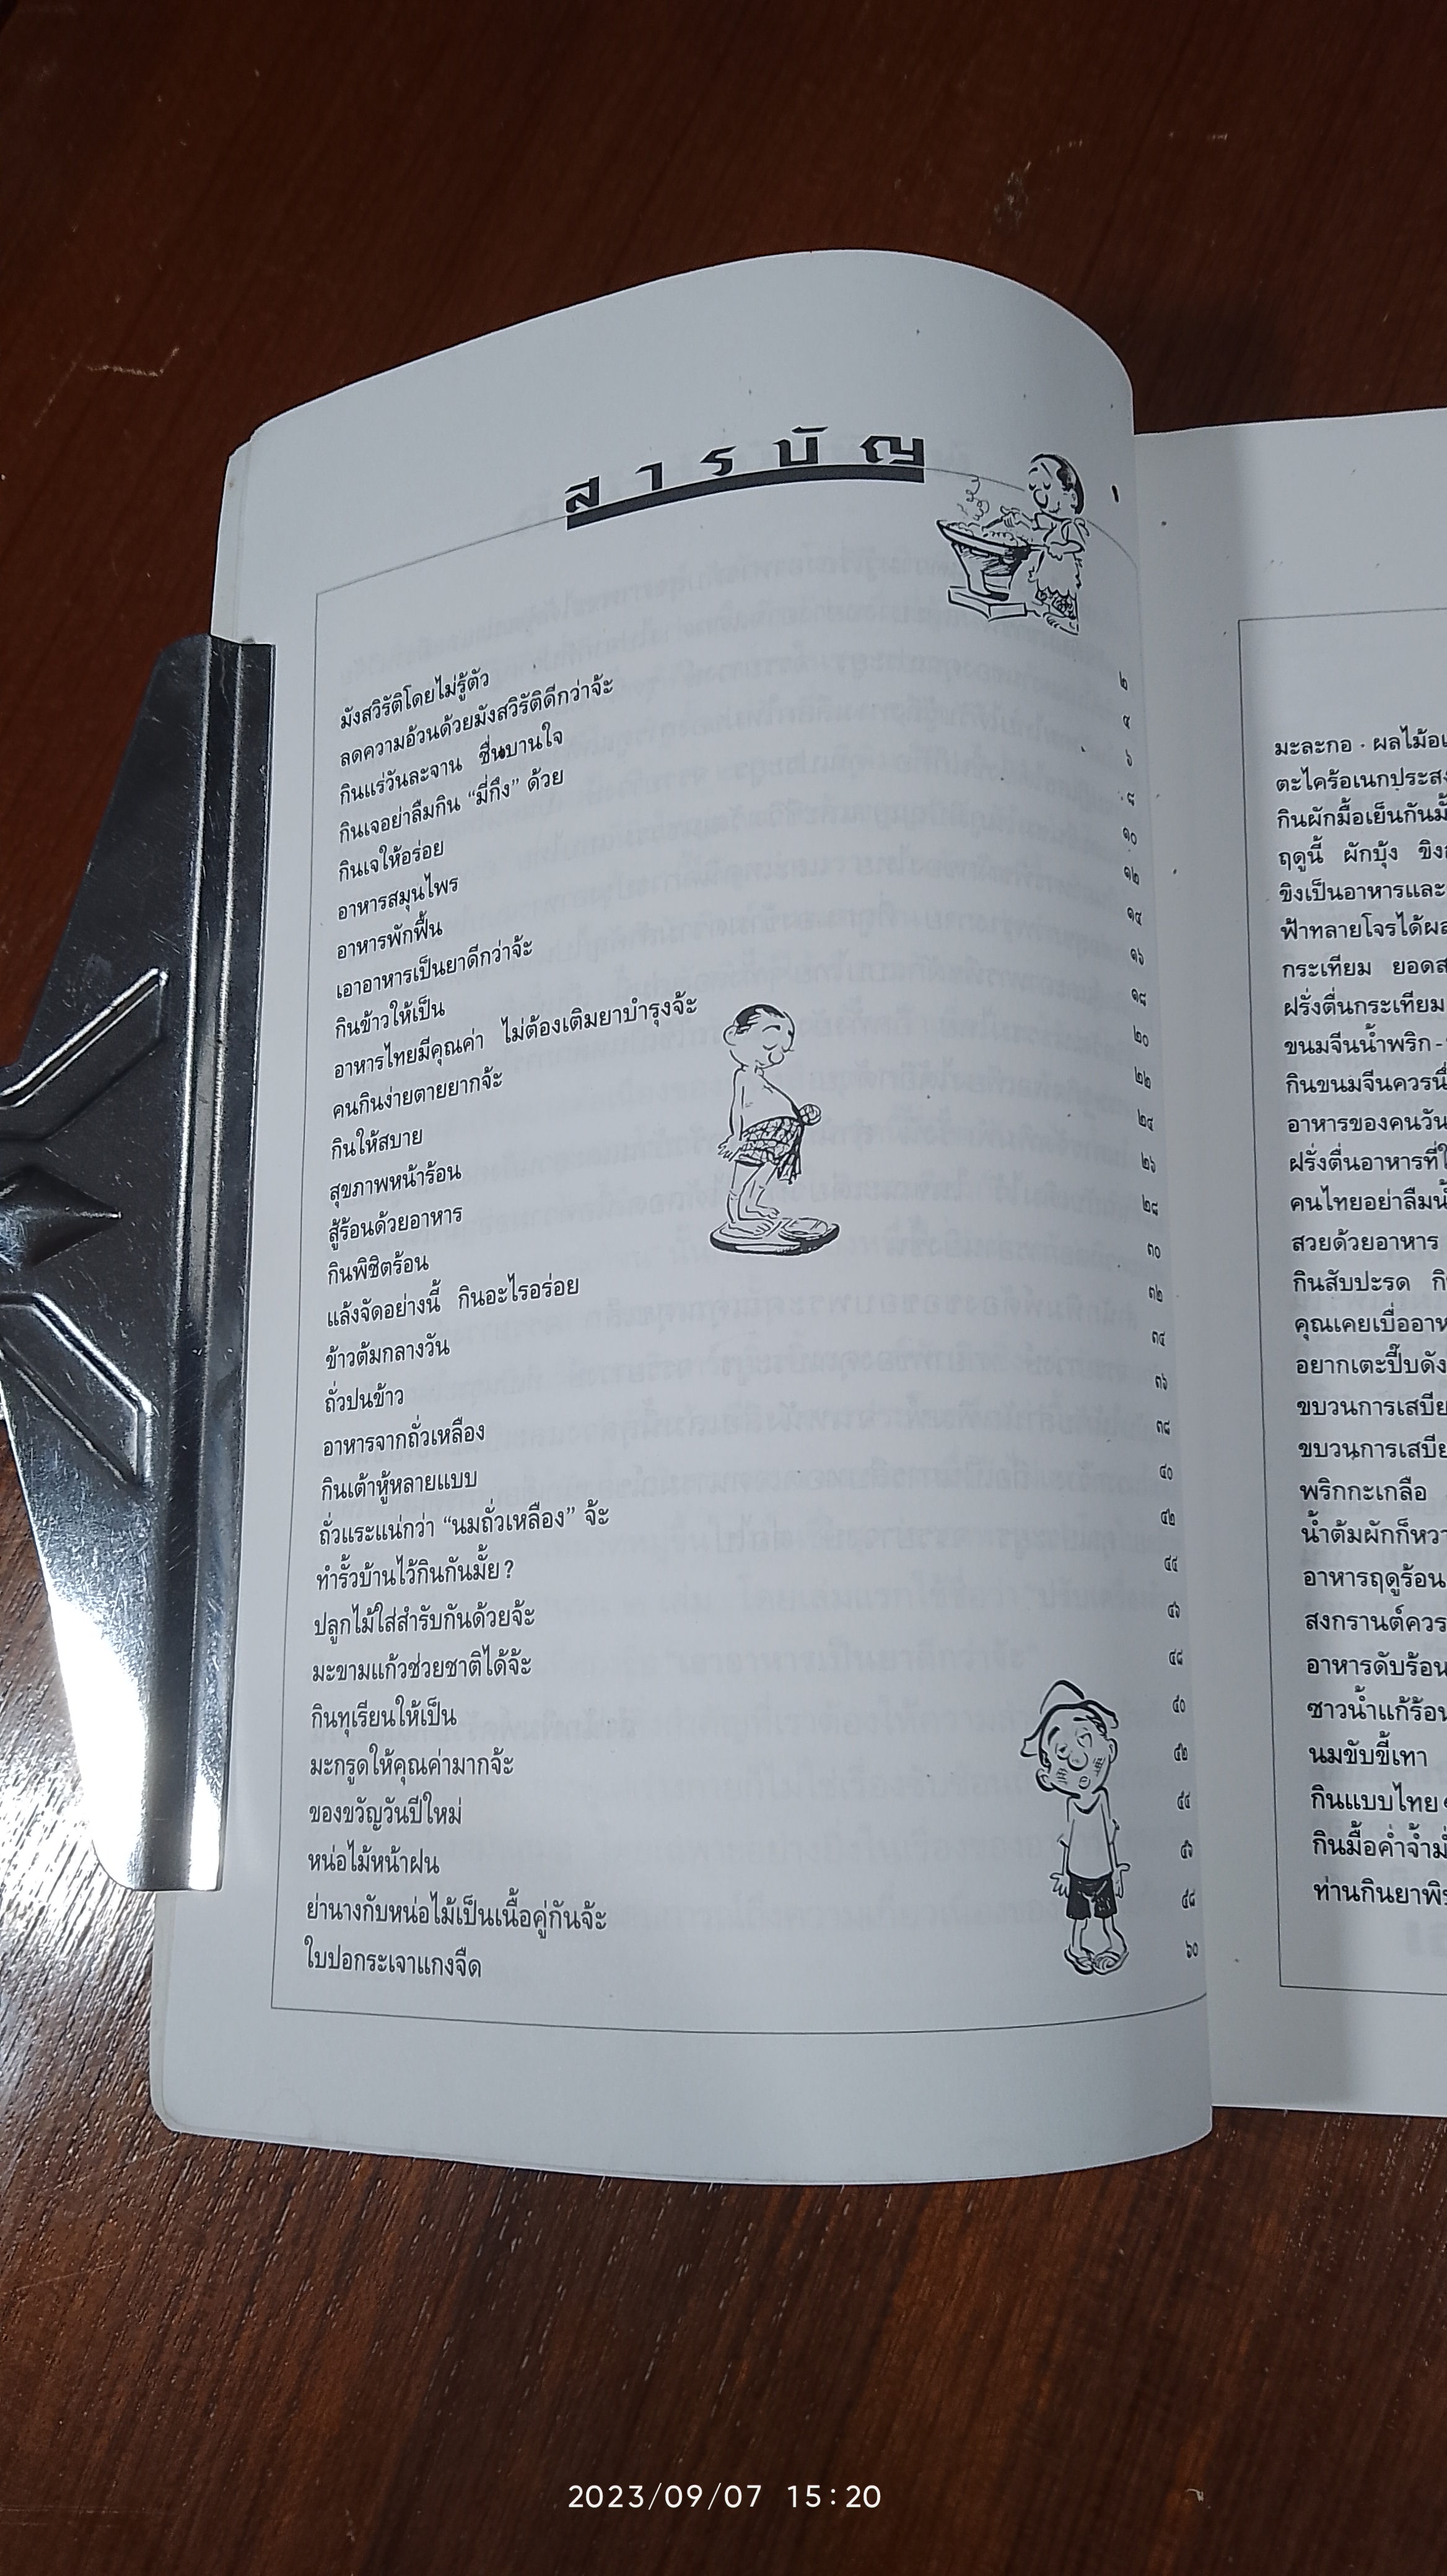 สารบัญ
มังสวิรัติโดยไม่รู้ตัว ๒
ลดความอ้วนด้วยมังสวิรัติดีกว่าจ้ะ ๔
กินแร่วันละจาน ชื่นบานใจ ๖
กินเจอย่าลืมกิน “มี่กึง” ด้วย ๘
กินเจให้อร่อย ๑๐
อาหารสมุนไพร ๑๒
อาหารพักฟื้น ๑๔
เอาอาหารเป็นยาดีกว่าจ้ะ ๑๖
กินข้าวให้เป็น ๑๘
อาหารไทยมีคุณค่า ไม่ต้องเติมยาบำรุงจ้ะ ๒๐
คนกินง่ายตายยากจ้ะ ๒๒
กินให้สบาย ๒๔
สุขภาพหน้าร้อน ๒๖
สู้ร้อนด้วยอาหาร ๒๘
กินพิชิตร้อน ๓๐
แล้งจัดอย่างนี้ กินอะไรอร่อย ๓๒
ข้าวต้มกลางวัน ๓๔
ถั่วปนข้าว ๓๖
อาหารจากถั่วเหลือง ๓๘
กินเต้าหู้หลายแบบ ๔๐
ถั่วแระแน่กว่า “นมถั่วเหลือง” จ้ะ ๔๒
ทำรั้วบ้านไว้กินกันมั้ย ? ๔๔
ปลูกไม้ใส่สำรับกันด้วยจ้ะ ๔๖
มะขามแก้วช่วยชาติได้จ้ะ ๔๘
กินทุเรียนให้เป็น ๕๐
มะกรูดให้คุณค่ามากจ้ะ ๕๒
ของขวัญวันปีใหม่ ๕๔
หน่อไม้หน้าฝน ๕๖
ย่านางกับหน่อไม้เป็นเนื้อคู่กันจ้ะ ๕๘
ใบปอกระเจาแกงจืด ๖๐
มะละกอ · ผลไม้อ
ตะไคร้อเนกประสง
กินผักมื้อเย็นกันมั้
ฤดูนี้ ผักบุ้ง ขิง
ขิงเป็นอาหารและ
ฟ้าทลายโจรได้ผล
กระเทียม ยอดส
ฝรั่งตื่นกระเทียม
ขนมจีนน้ำพริก -
กินขนมจีนควรนึ
อาหารของคนวัน
ฝรั่งตื่นอาหารที่ใ
คนไทยอย่าลืมน้
สวยด้วยอาหาร
กินสับปะรด กิ
คุณเคยเบื่ออาห
อยากเตะปี๊บดัง
ขบวนการเสบีย
ขบวนการเสบีย
พริกกะเกลือ
น้ำต้มผักก็หวา
อาหารฤดูร้อน
สงกรานต์ควร
อาหารดับร้อน
ซาวน้ำแก้ร้อน
นมขับขี้เทา
กินแบบไทย
กินมื้อค่ำจ้ำม่
ท่านกินยาพิ
2023/09/07 15:20